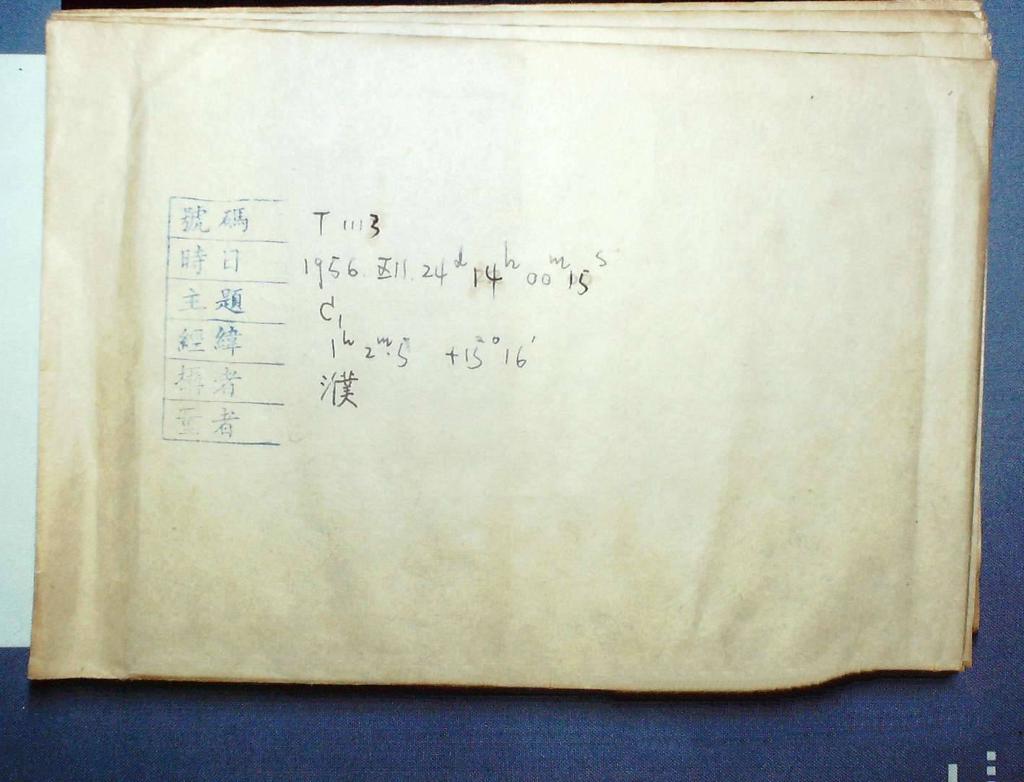 號碼 T 1113
時日 1956. XII. 24ᵈ 14ʰ 00ᵐ 15ˢ
主題 C₁
經緯 1ʰ 2ᵐ.5 +15° 16′
攝者 濮
者